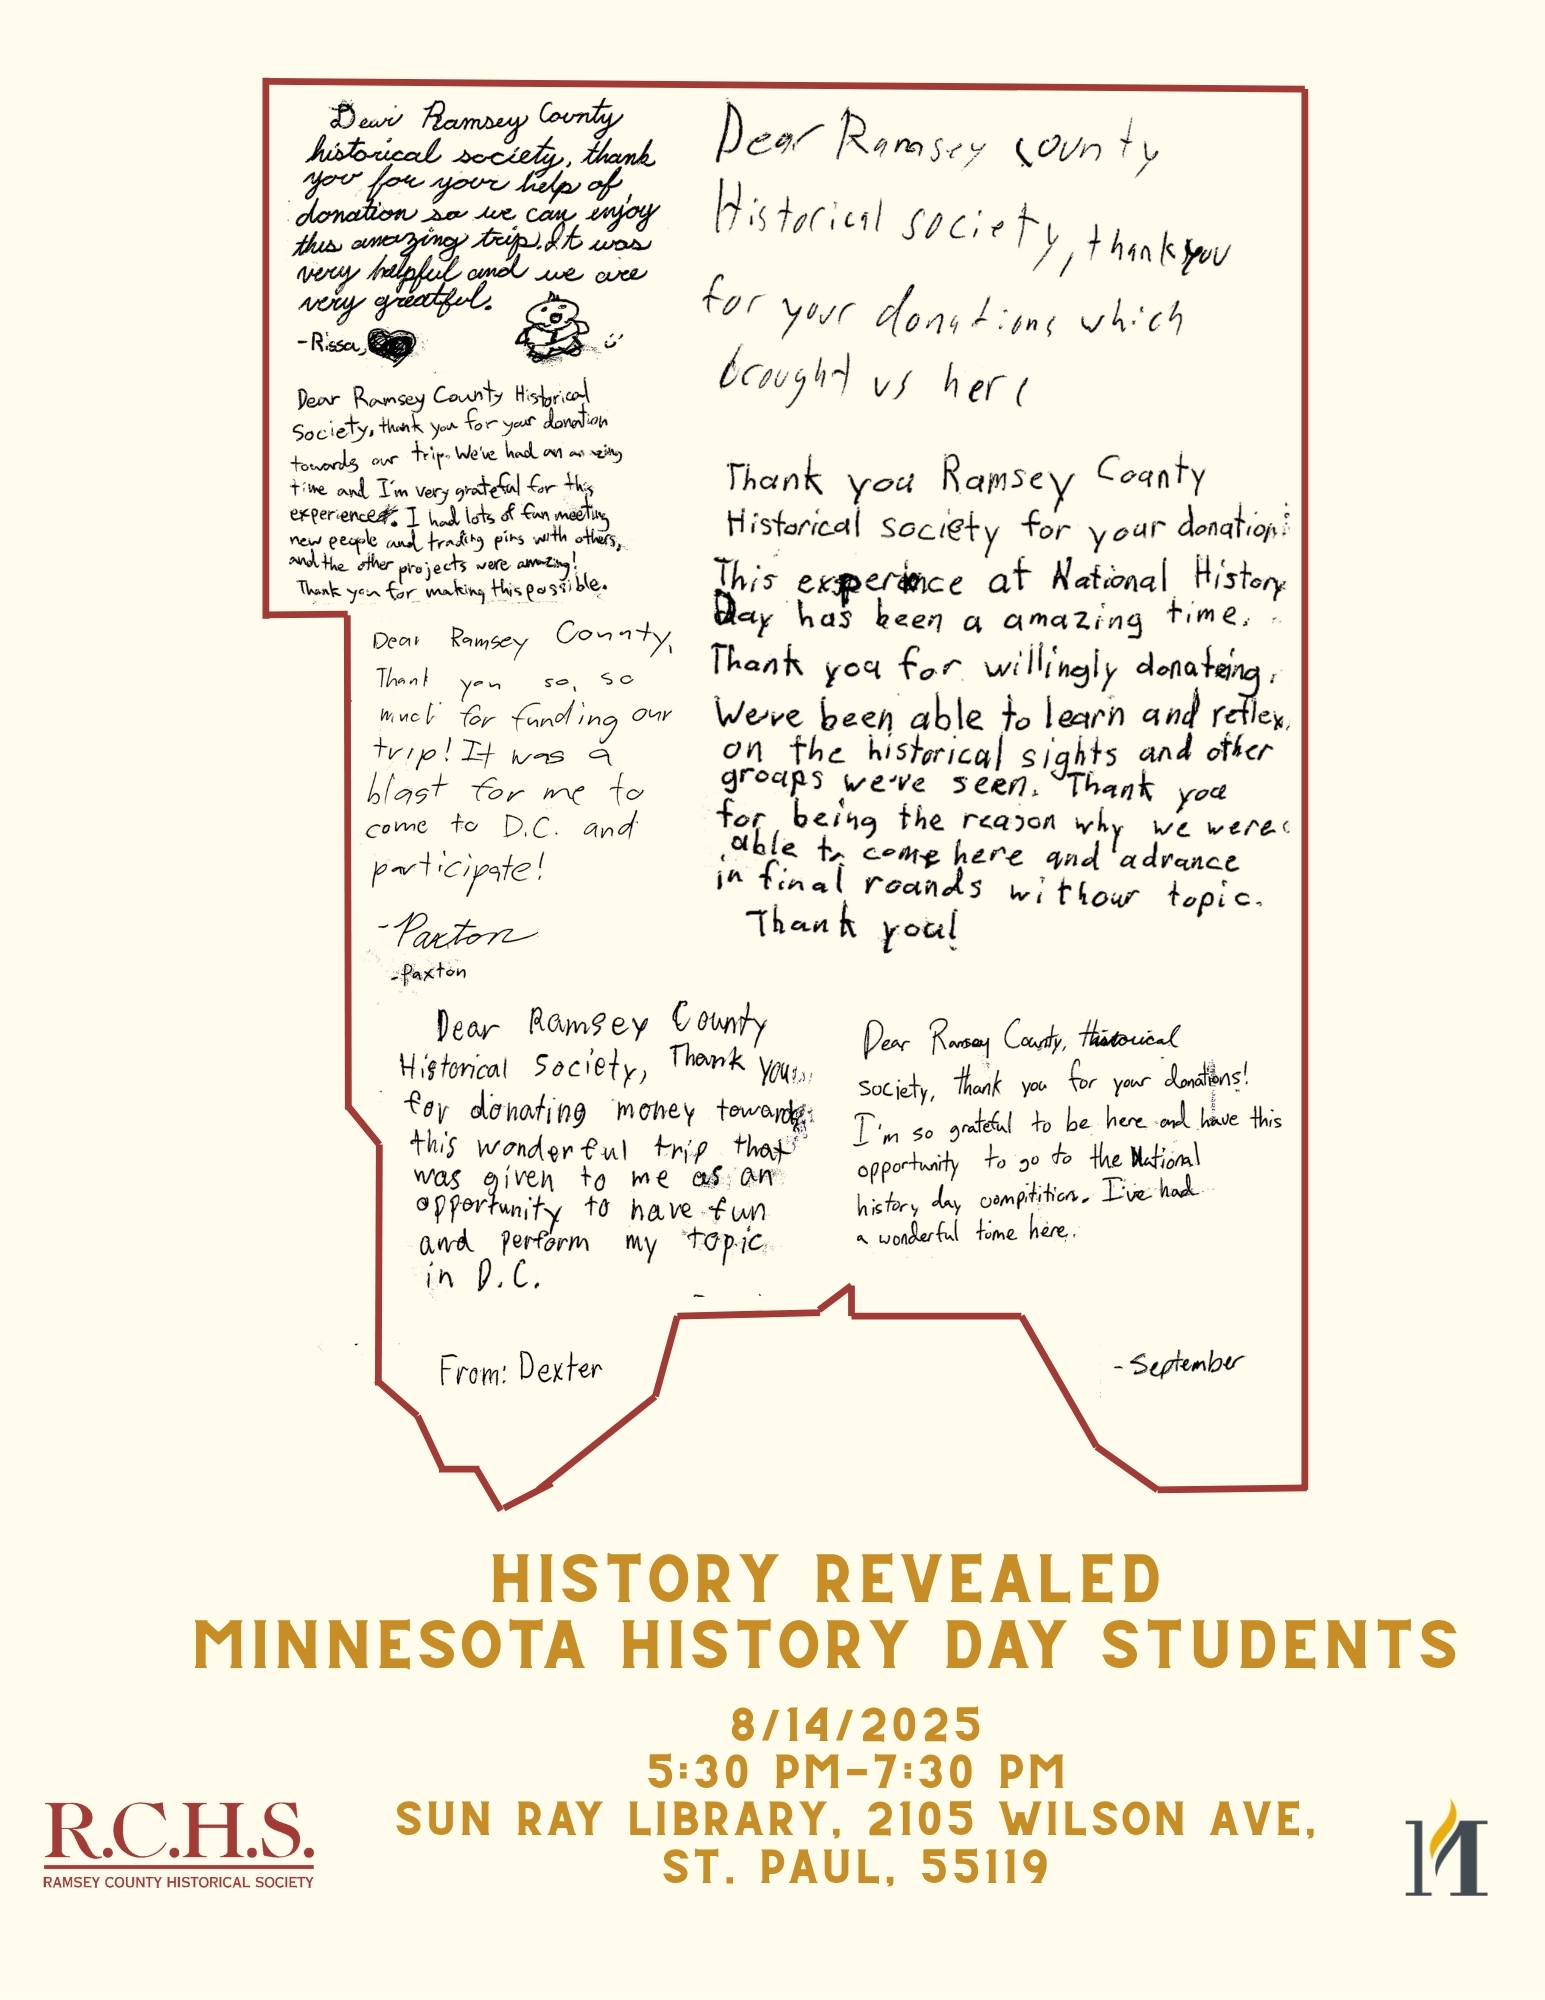 Dear Ramsey County
historical society, thank
you for your help of
donation so we can enjoy
this amazing trip. It was
very helpful and we are
very greatful.
-Rissa,
Dear Ramsey County Historical
Society, thank you for your donation
towards our trip. We've had an amazing
time and I'm very grateful for this
experience. I had lots of fun meeting
new people and trading pins with others,
and the other projects were amazing!
Thank you for making this possible.
Dear Ramsey County,
Thank you so, so
much for funding our
trip! It was a
blast for me to
come to D.C. and
participate!
-Paxton
-Paxton
Dear Ramsey County
Historical Society, Thank you
for donating money towards
this wonderful trip that
was given to me as an
opportunity to have fun
and perform my topic
in D.C.
From: Dexter
Dear Ramsey County
Historical society, thank you
for your donations which
brought us here
Thank you Ramsey County
Historical society for your donation
This experince at National History
Day has been a amazing time.
Thank you for willingly donateing.
We've been able to learn and reflex
on the historical sights and other
groups we've seen. Thank you
for being the reason why we were
able to come here and advance
in final rounds with our topic.
Thank you!
Dear Ramsey County, Historical
society, thank you for your donations!
I'm so grateful to be here and have this
opportunity to go to the National
history day compitition. I've had
a wonderful time here.
-September
HISTORY REVEALED
MINNESOTA HISTORY DAY STUDENTS
8/14/2025
5:30 PM-7:30 PM
SUN RAY LIBRARY, 2105 WILSON AVE,
ST. PAUL, 55119
R.C.H.S.
RAMSEY COUNTY HISTORICAL SOCIETY